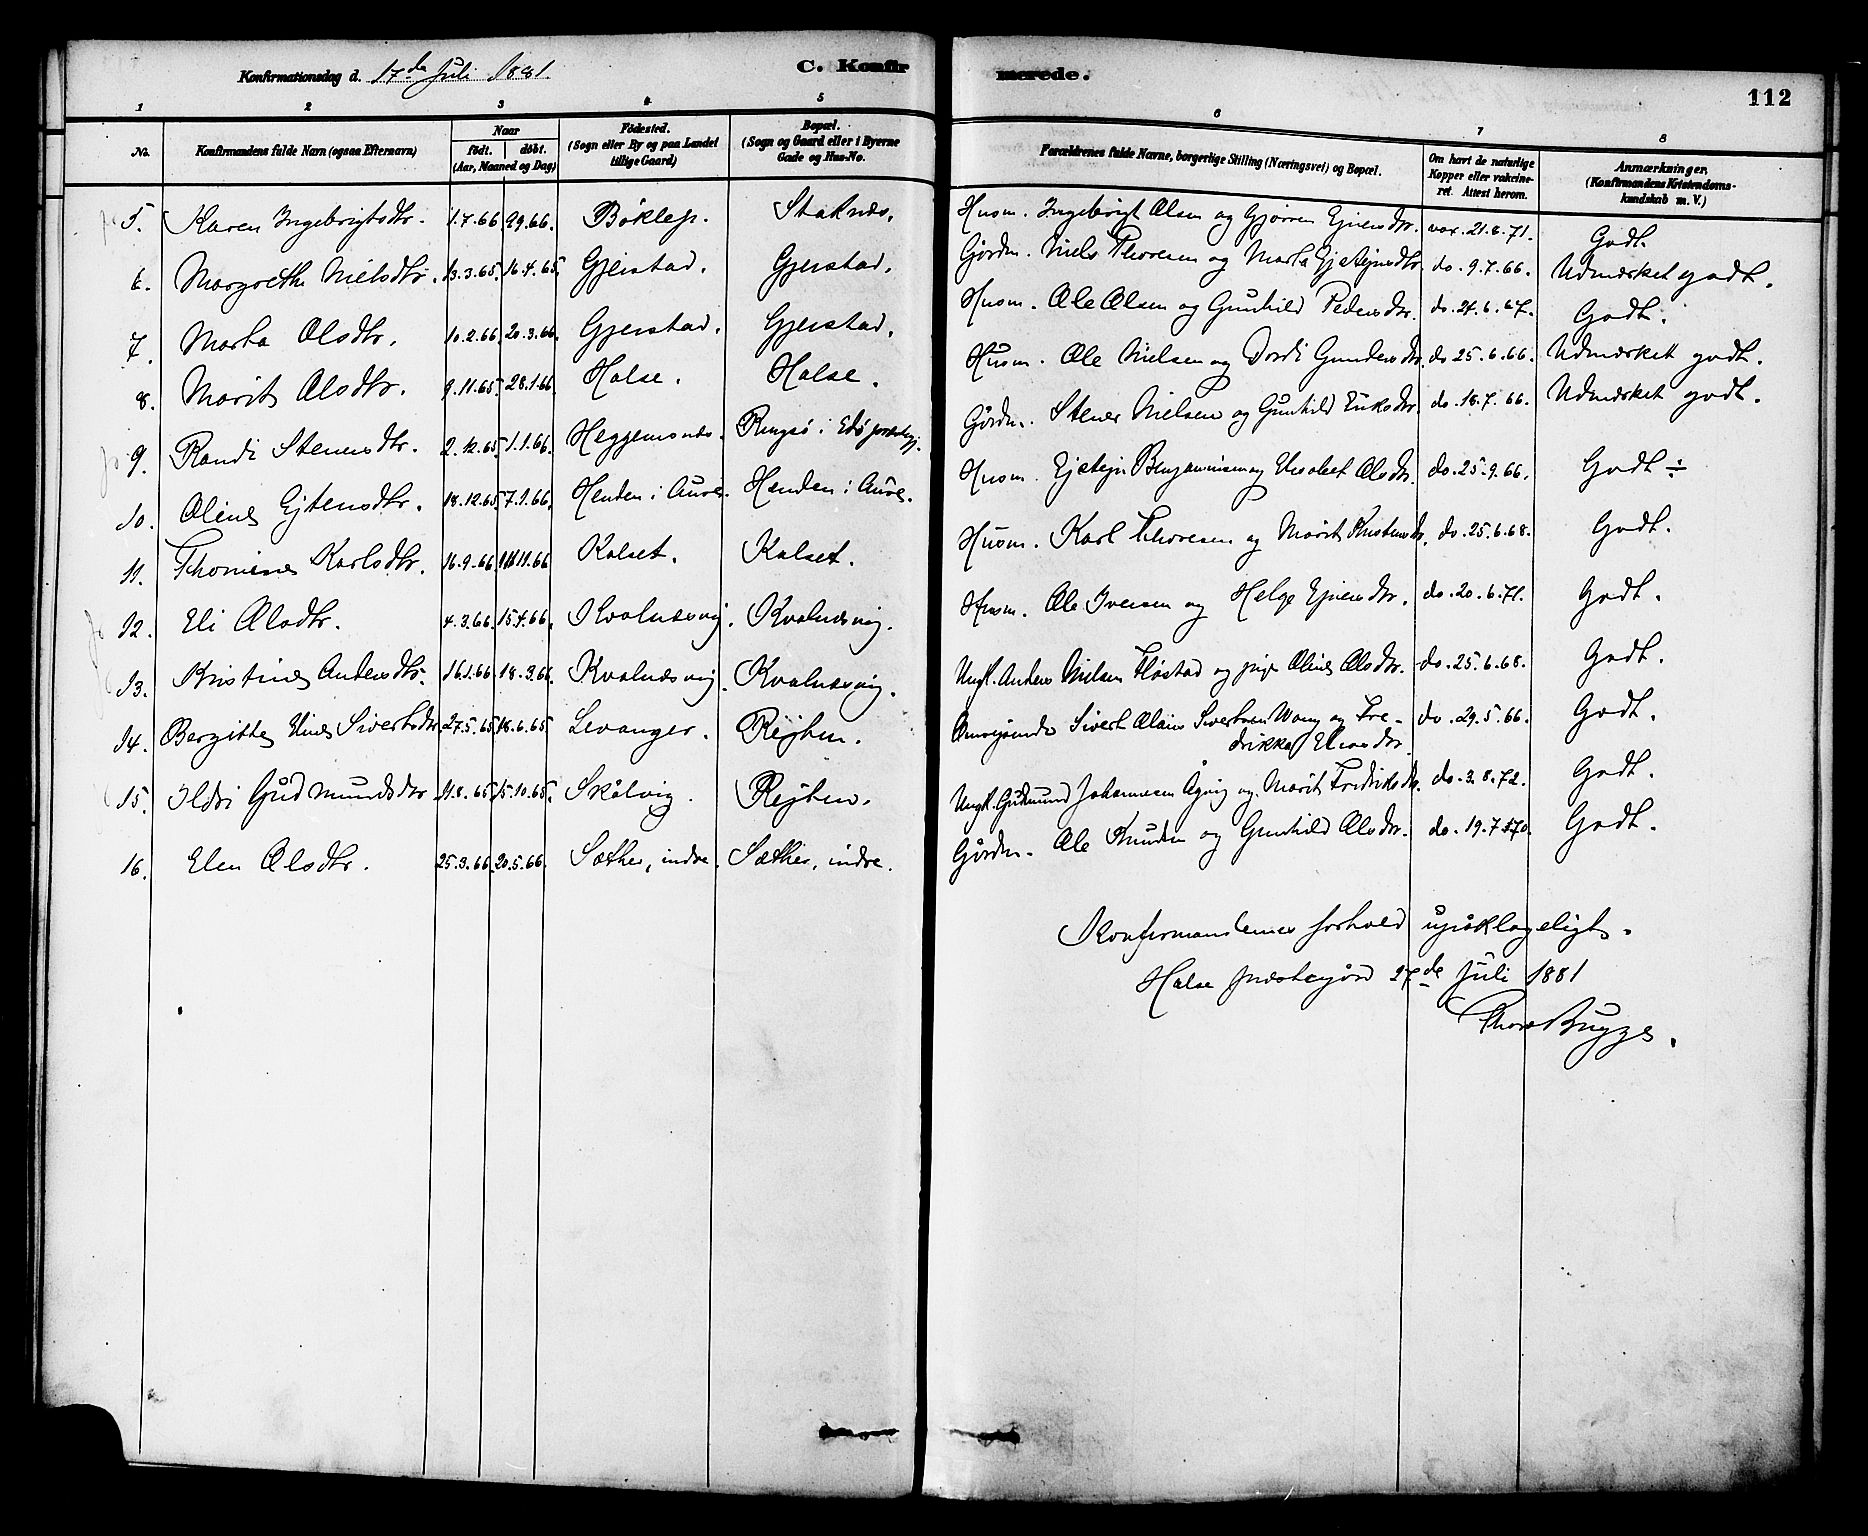 Konfirmationsdag d. 17de Juli 1881.
C. Konfirmerede.
112
1 2 3 4 5 6 7 8
No. Konfirmandens fulde Navn (ogsaa Efternavn) Naar født. døbt. (Aar, Maaned og Dag) Fødested. (Sogn eller By og paa Landet tillige Gaard) Bopæl. (Sogn og Gaard eller i Byerne Gade og Hus-No. Forældrenes fulde Navne, borgerlige Stilling (Næringsvei) og Bopæl. Om havt de naturlige Kopper eller vakcineret. Attest herom. Anmærkninger. (Konfirmandens Kristendomskundskab m. V.)
5. Karen Ingebrigtsdtr. 1.7.66 29.66. Bøklep. Staknæs. Husm. Ingebrigt Olsen og Gjørren Ejnersdtr. vax. 21.8.71. Godt.
6. Margrethe Nielsdtr. 13.3.65. 16.4.65. Gjerstad. Gjerstad. Gårdm. Niels Thoresen og Marta Ejstejnsdtr. do. 9.7.66. Udmærket godt.
7. Marta Olsdtr. 10.2.66. 20.3.66. Gjerstad. Gjerstad. Husm. Ole Olsen og Gunhild Pedersdtr. do. 24.6.67. Godt.
8. Marit Olsdtr. 9.11.65. 28.1.66 Halse. Halse. Husm. Ole Nielsen og Dordi Gundersdtr. do 25.6.66. Udmærket godt.
9. Randi Stenersdtr. 2.12.65. 1.1.66. Heggemsnæs. Ringsø i Edø præstegj. Gårdm. Stener Nielsen og Gunhild Eriksdtr. do. 18.7.66. Udmærket godt.
10. Oline Ejstensdtr. 18.12.65. 7.1.66. Henden i Aure. Henden i Aure. Husm. Ejstejn Benjaminsen og Elisabet Olsdtr. do. 25.9.66. Godt ÷
11. Thomine Karlsdtr. 16.9.66. 11.66 Kalset. Kalset. Husm. Karl Thoresen og Marit Kristensdtr. do. 25.6.68. Godt.
12. Eli Olsdtr. 4.3.66. 15.4.66. Kvalnæsvig. Kvalnæsvig. Husm. Ole Iversen og Helge Ejnersdtr. do. 20.6.71. Godt.
13. Kristine Andersdtr. 16.1.66. 18.3.66. Kvalnæsvig. Kvalnæsvig. Ungk. Anders Nielsen Fløstad og pige Oline Olsdtr. do. 25.6.68. Godt.
14. Bergitte Eline Sivertsdtr. 27.5.65. 18.6.65 Levanger. Rejten. Sivert Olaus Sivertsen Wang og Fredrikke Eliasdtr. do. 29.5.66. Godt.
15. Ildri Gudmundsdtr. 21.8.65. 15.10.65. Skålvig. Rejten. Ungk. Gudmund Johannesen Ågvig og Marit Fredriksdtr. do. 3.8.72. Godt.
16. Elen Olsdtr. 25.3.66. 20.5.66. Sæther, indre. Sæther, indre. Gårdm. Ole Knudsen og Gunhild Olsdtr. do. 19.7.70. Godt.
Konfirmandernes forhold upåklageligt.
Halse præstegård 27de Juli 1881
Thore Bugge.